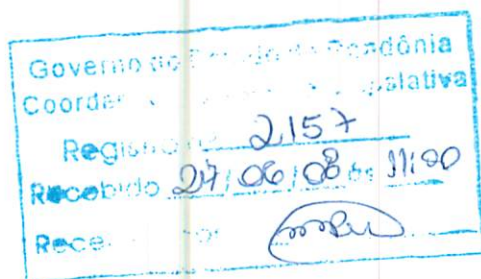 Governo do Estado de Rondônia
Coordar slativa
Registro nº 2157
Recebido 27/06/08 às 11:00
Rece